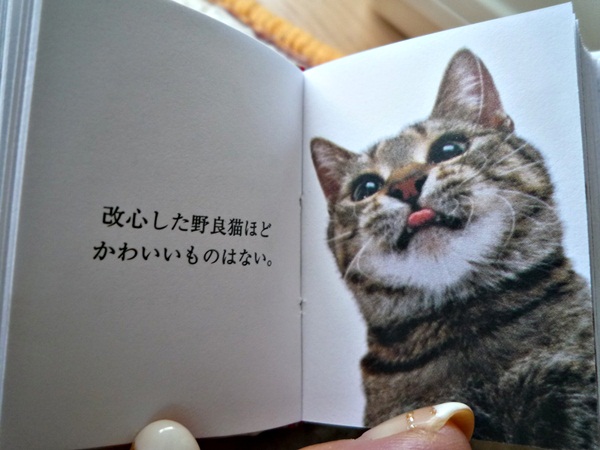 改心した野良猫ほど
かわいいものはない。